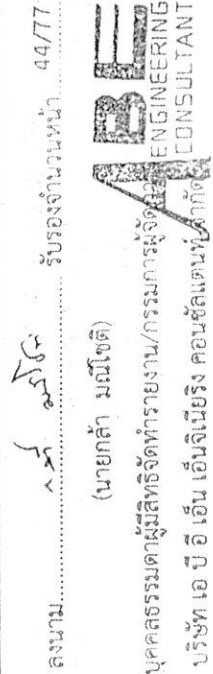 ลงนาม..............................รับรองจำนวนหน้า......44/77
(นายกล้า มณีโชติ)
บุคคลธรรมดาผู้มีสิทธิจัดทำรายงาน/กรรมการผู้จัดการ
บริษัท เอ บี อี เอ็น เอ็นจิเนียริง คอนซัลแตนท์ จำกัด
ABE
ENGINEERING
CONSULTANT